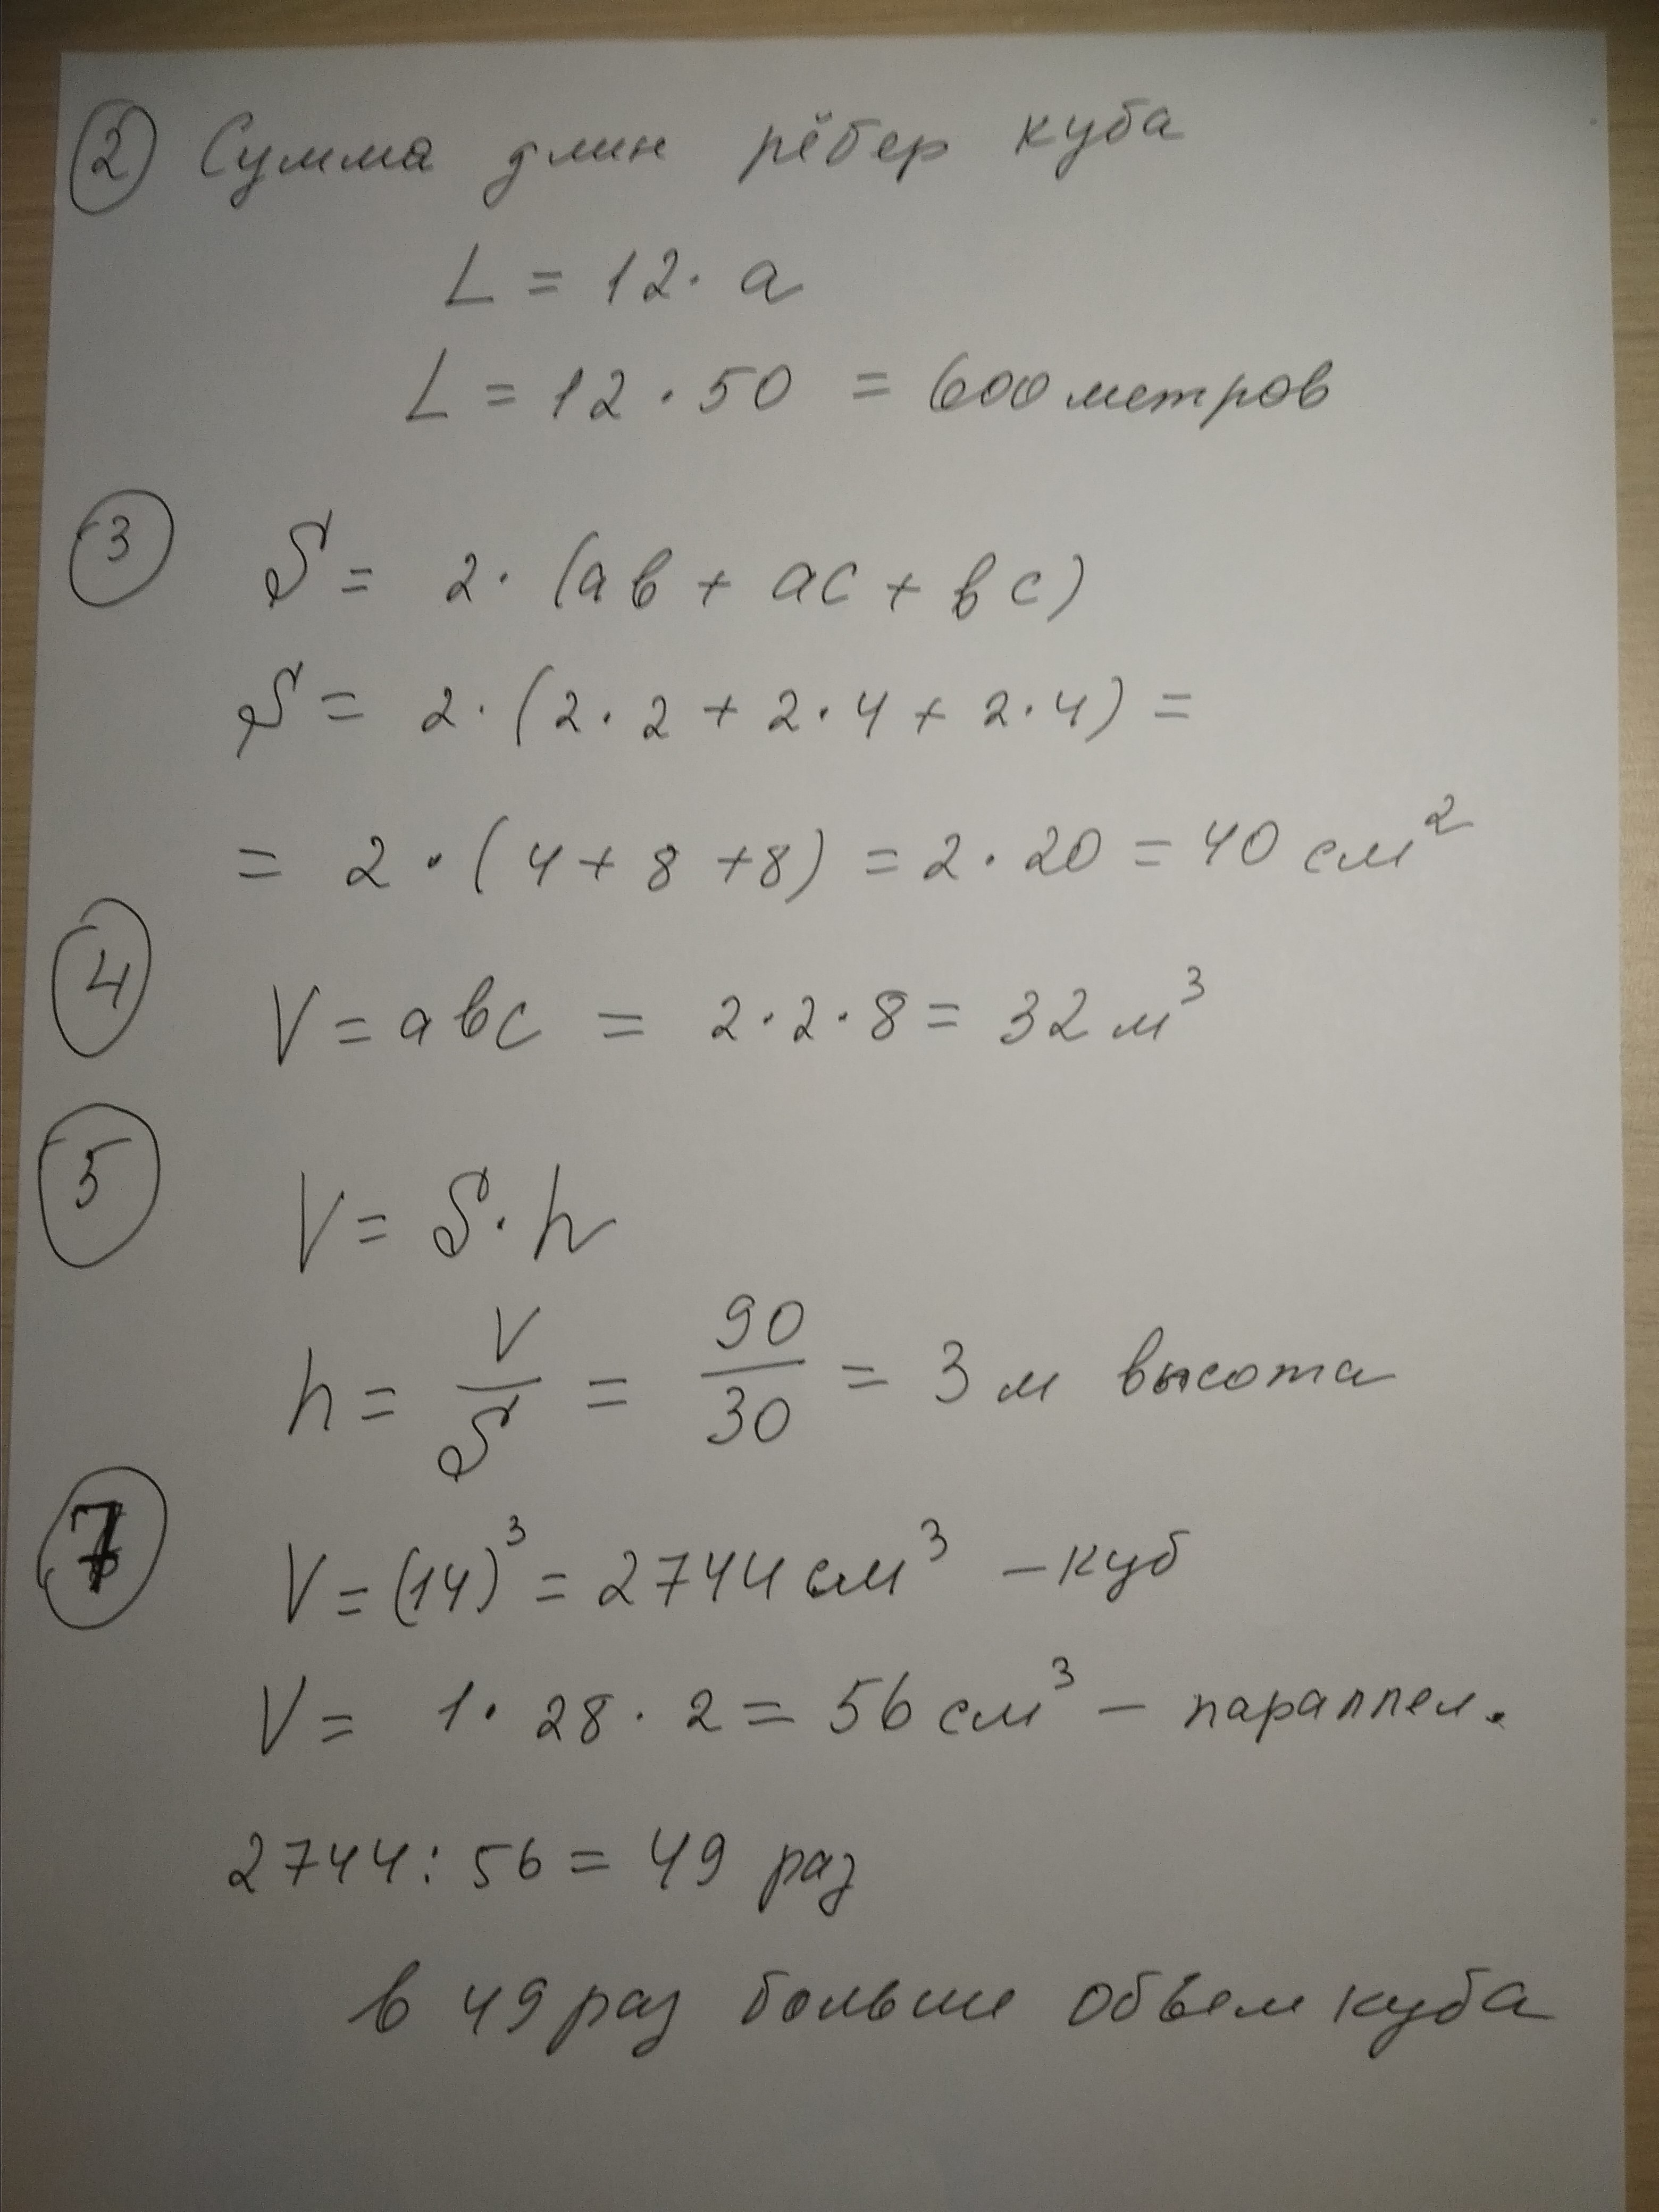 2 Сумма длин рёбер куба
L = 12 · a
L = 12 · 50 = 600 метров
3 S = 2 · (ab + ac + bc)
S = 2 · (2 · 2 + 2 · 4 + 2 · 4) =
= 2 · (4 + 8 + 8) = 2 · 20 = 40 см²
4 V = abc = 2 · 2 · 8 = 32 м³
5 V = S · h
h = V/S = 90/30 = 3 м высота
7 V = (14)³ = 2744 см³ – куб
V = 1 · 28 · 2 = 56 см³ – параллел.
2744 : 56 = 49 раз
в 49 раз больше объем куба